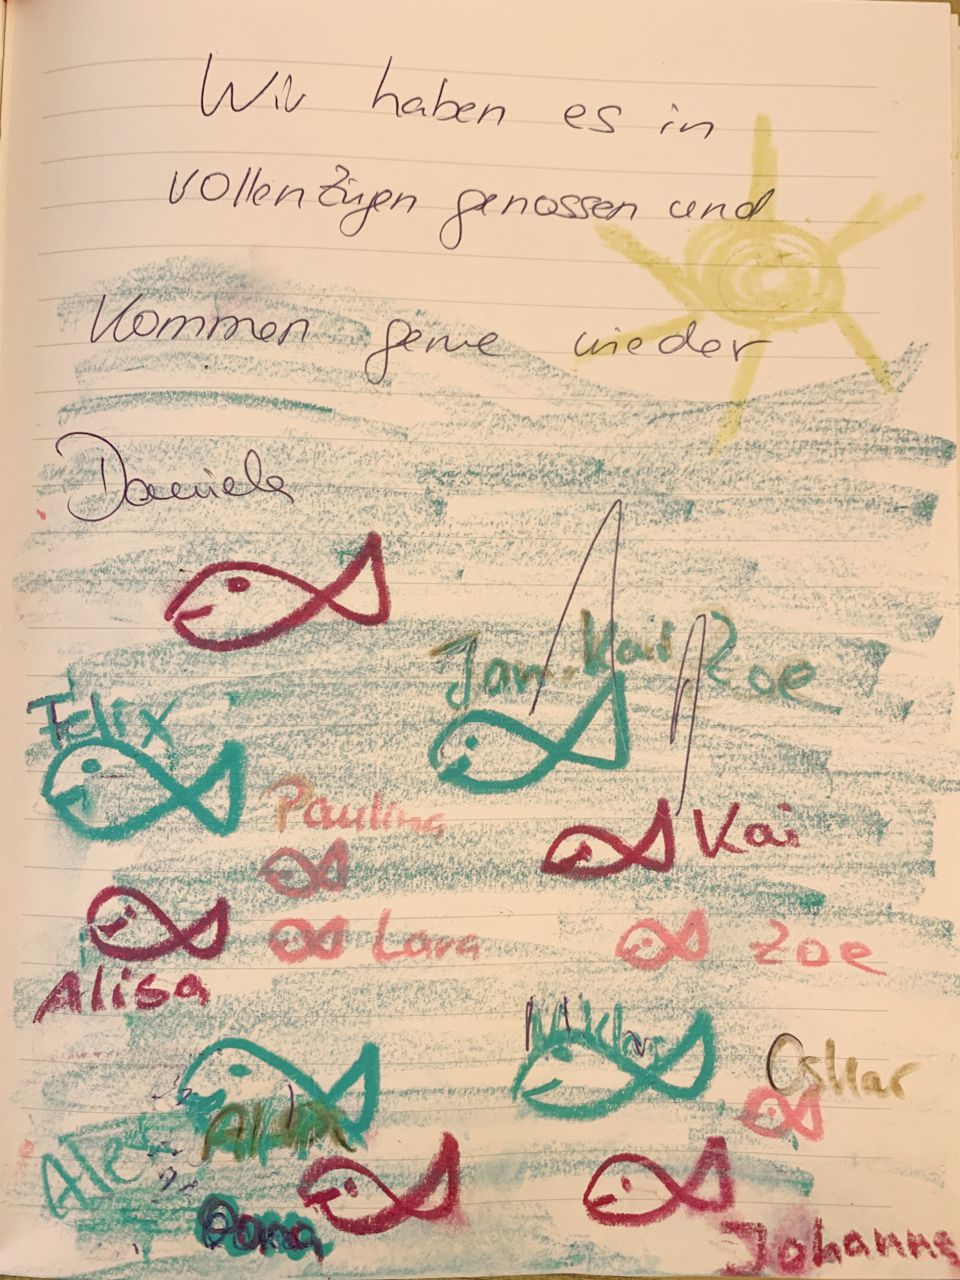 Wir haben es in
vollen Zügen genossen und
kommen gerne wieder
Daniela
Jan-Kai Zoe
Felix
Paulina
Kai
Lara Zoe
Alisa
Niklas
Oskar
Alex
Oona
Johanna